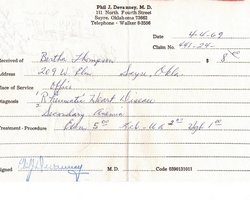 Phil J. Devanney, M. D.
111 North Fourth Street
Sayre, Oklahoma 73662
Telephone - Walker 8-3556
4-4-69
Claim No. 441-24-
Received of Bertha Thompson $ 8
209 W. Elm Sayre, Okla.
Place of Service Office
Diagnosis Rheumatic Heart Disease
Secondary Anemia
Treatment - Procedure
Signed M. D. Code 0390131011